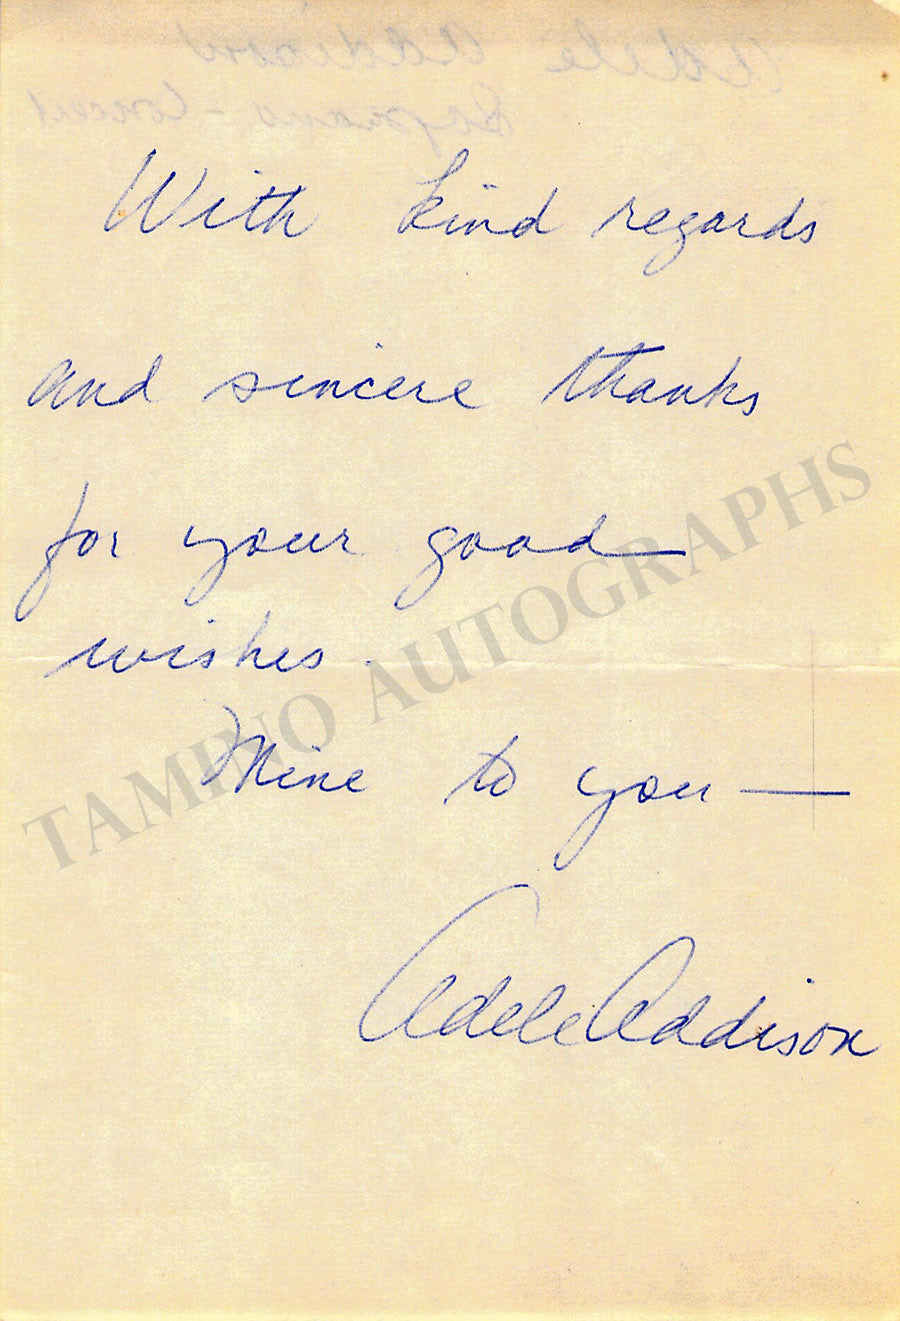 Adele Addison
Soprano - Concert
With kind regards
and sincere thanks
for your good
wishes.
Mine to you —
Adele Addison
TAMINO AUTOGRAPHS